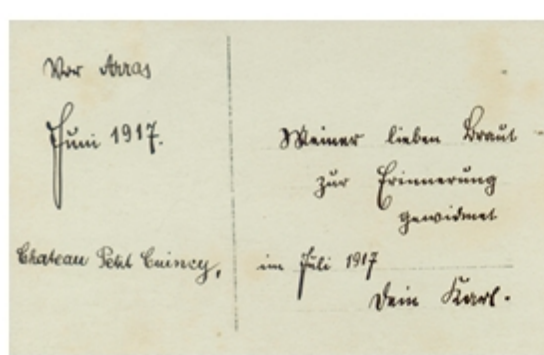 Vor Arras
Juni 1917.
Chateau Petit Cuincy,
Meiner lieben Braut
zur Erinnerung
gewidmet
im Juli 1917
Dein Karl.